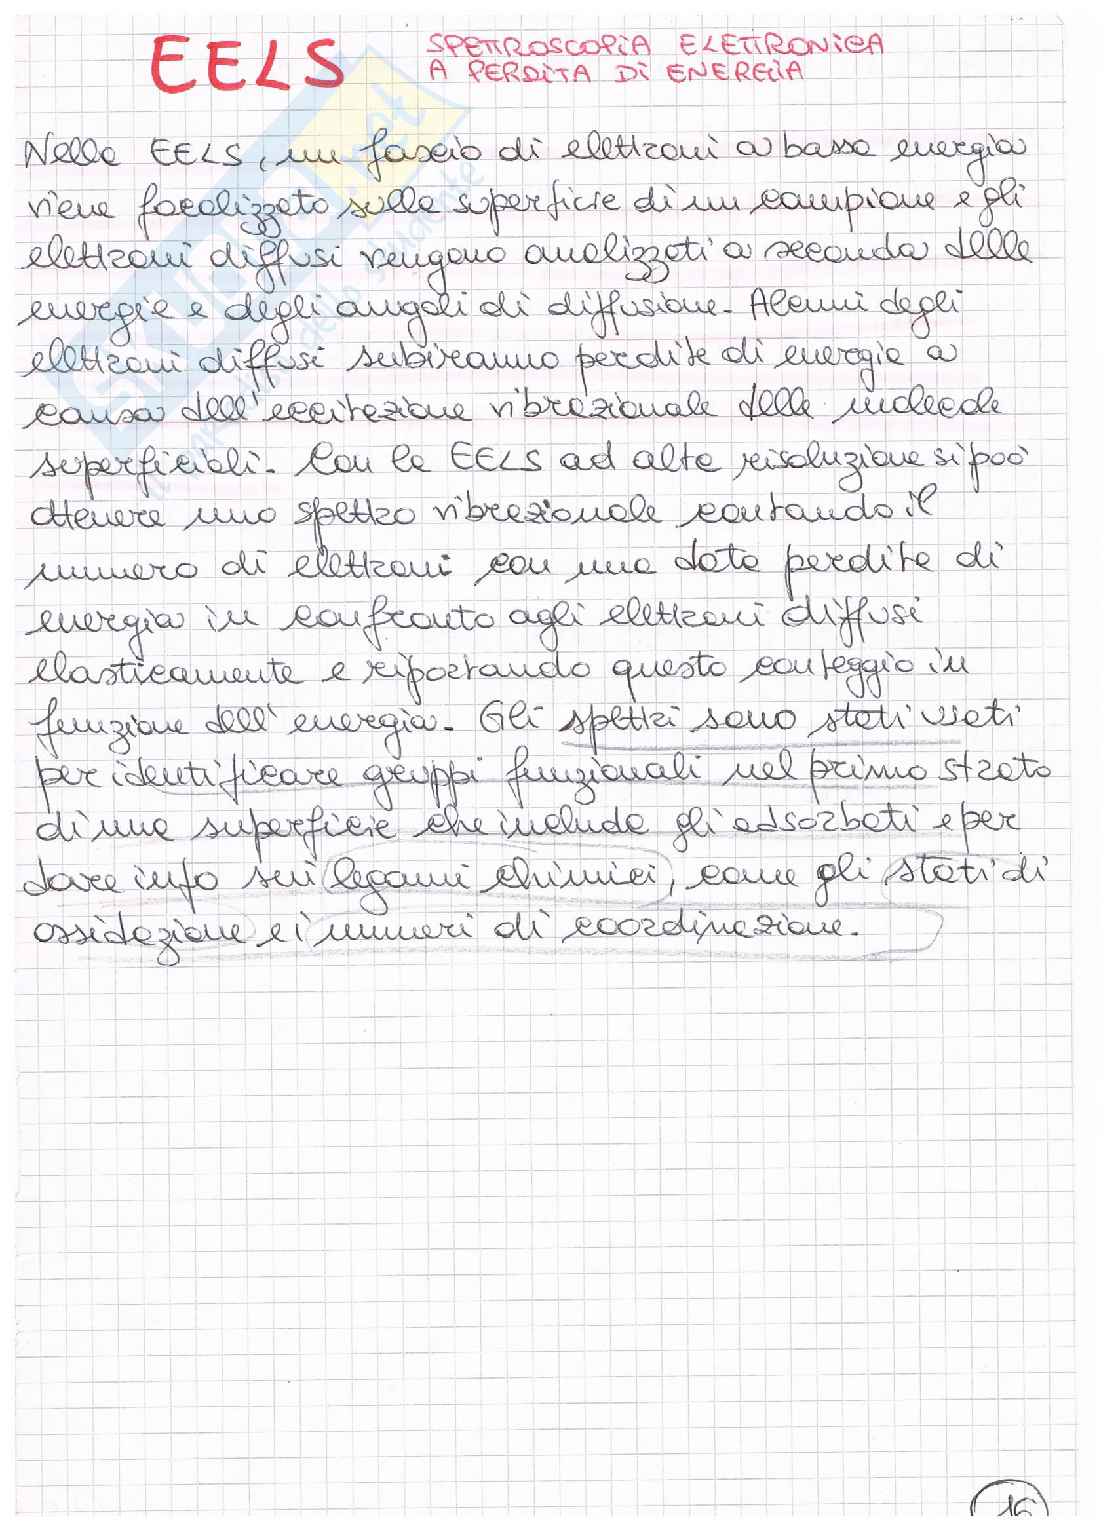 EELS
SPETTROSCOPIA ELETTRONICA
A PERDITA DI ENERGIA
Nella EELS, un fascio di elettroni a bassa energia
viene focalizzato sulla superficie di un campione e gli
elettroni diffusi vengono analizzati a seconda delle
energie e degli angoli di diffusione. Alcuni degli
elettroni diffusi subiranno perdite di energia a
causa dell'eccitazione vibrazionale delle molecole
superficiali. Con la EELS ad alta risoluzione si può
ottenere uno spettro vibrazionale contando il
numero di elettroni con una data perdita di
energia in confronto agli elettroni diffusi
elasticamente e riportando questo conteggio in
funzione dell'energia. Gli spettri sono stati usati
per identificare gruppi funzionali nel primo strato
di una superficie che include gli adsorbati e per
dare info sui legami chimici, come gli stati di
ossidazione e i numeri di coordinazione.